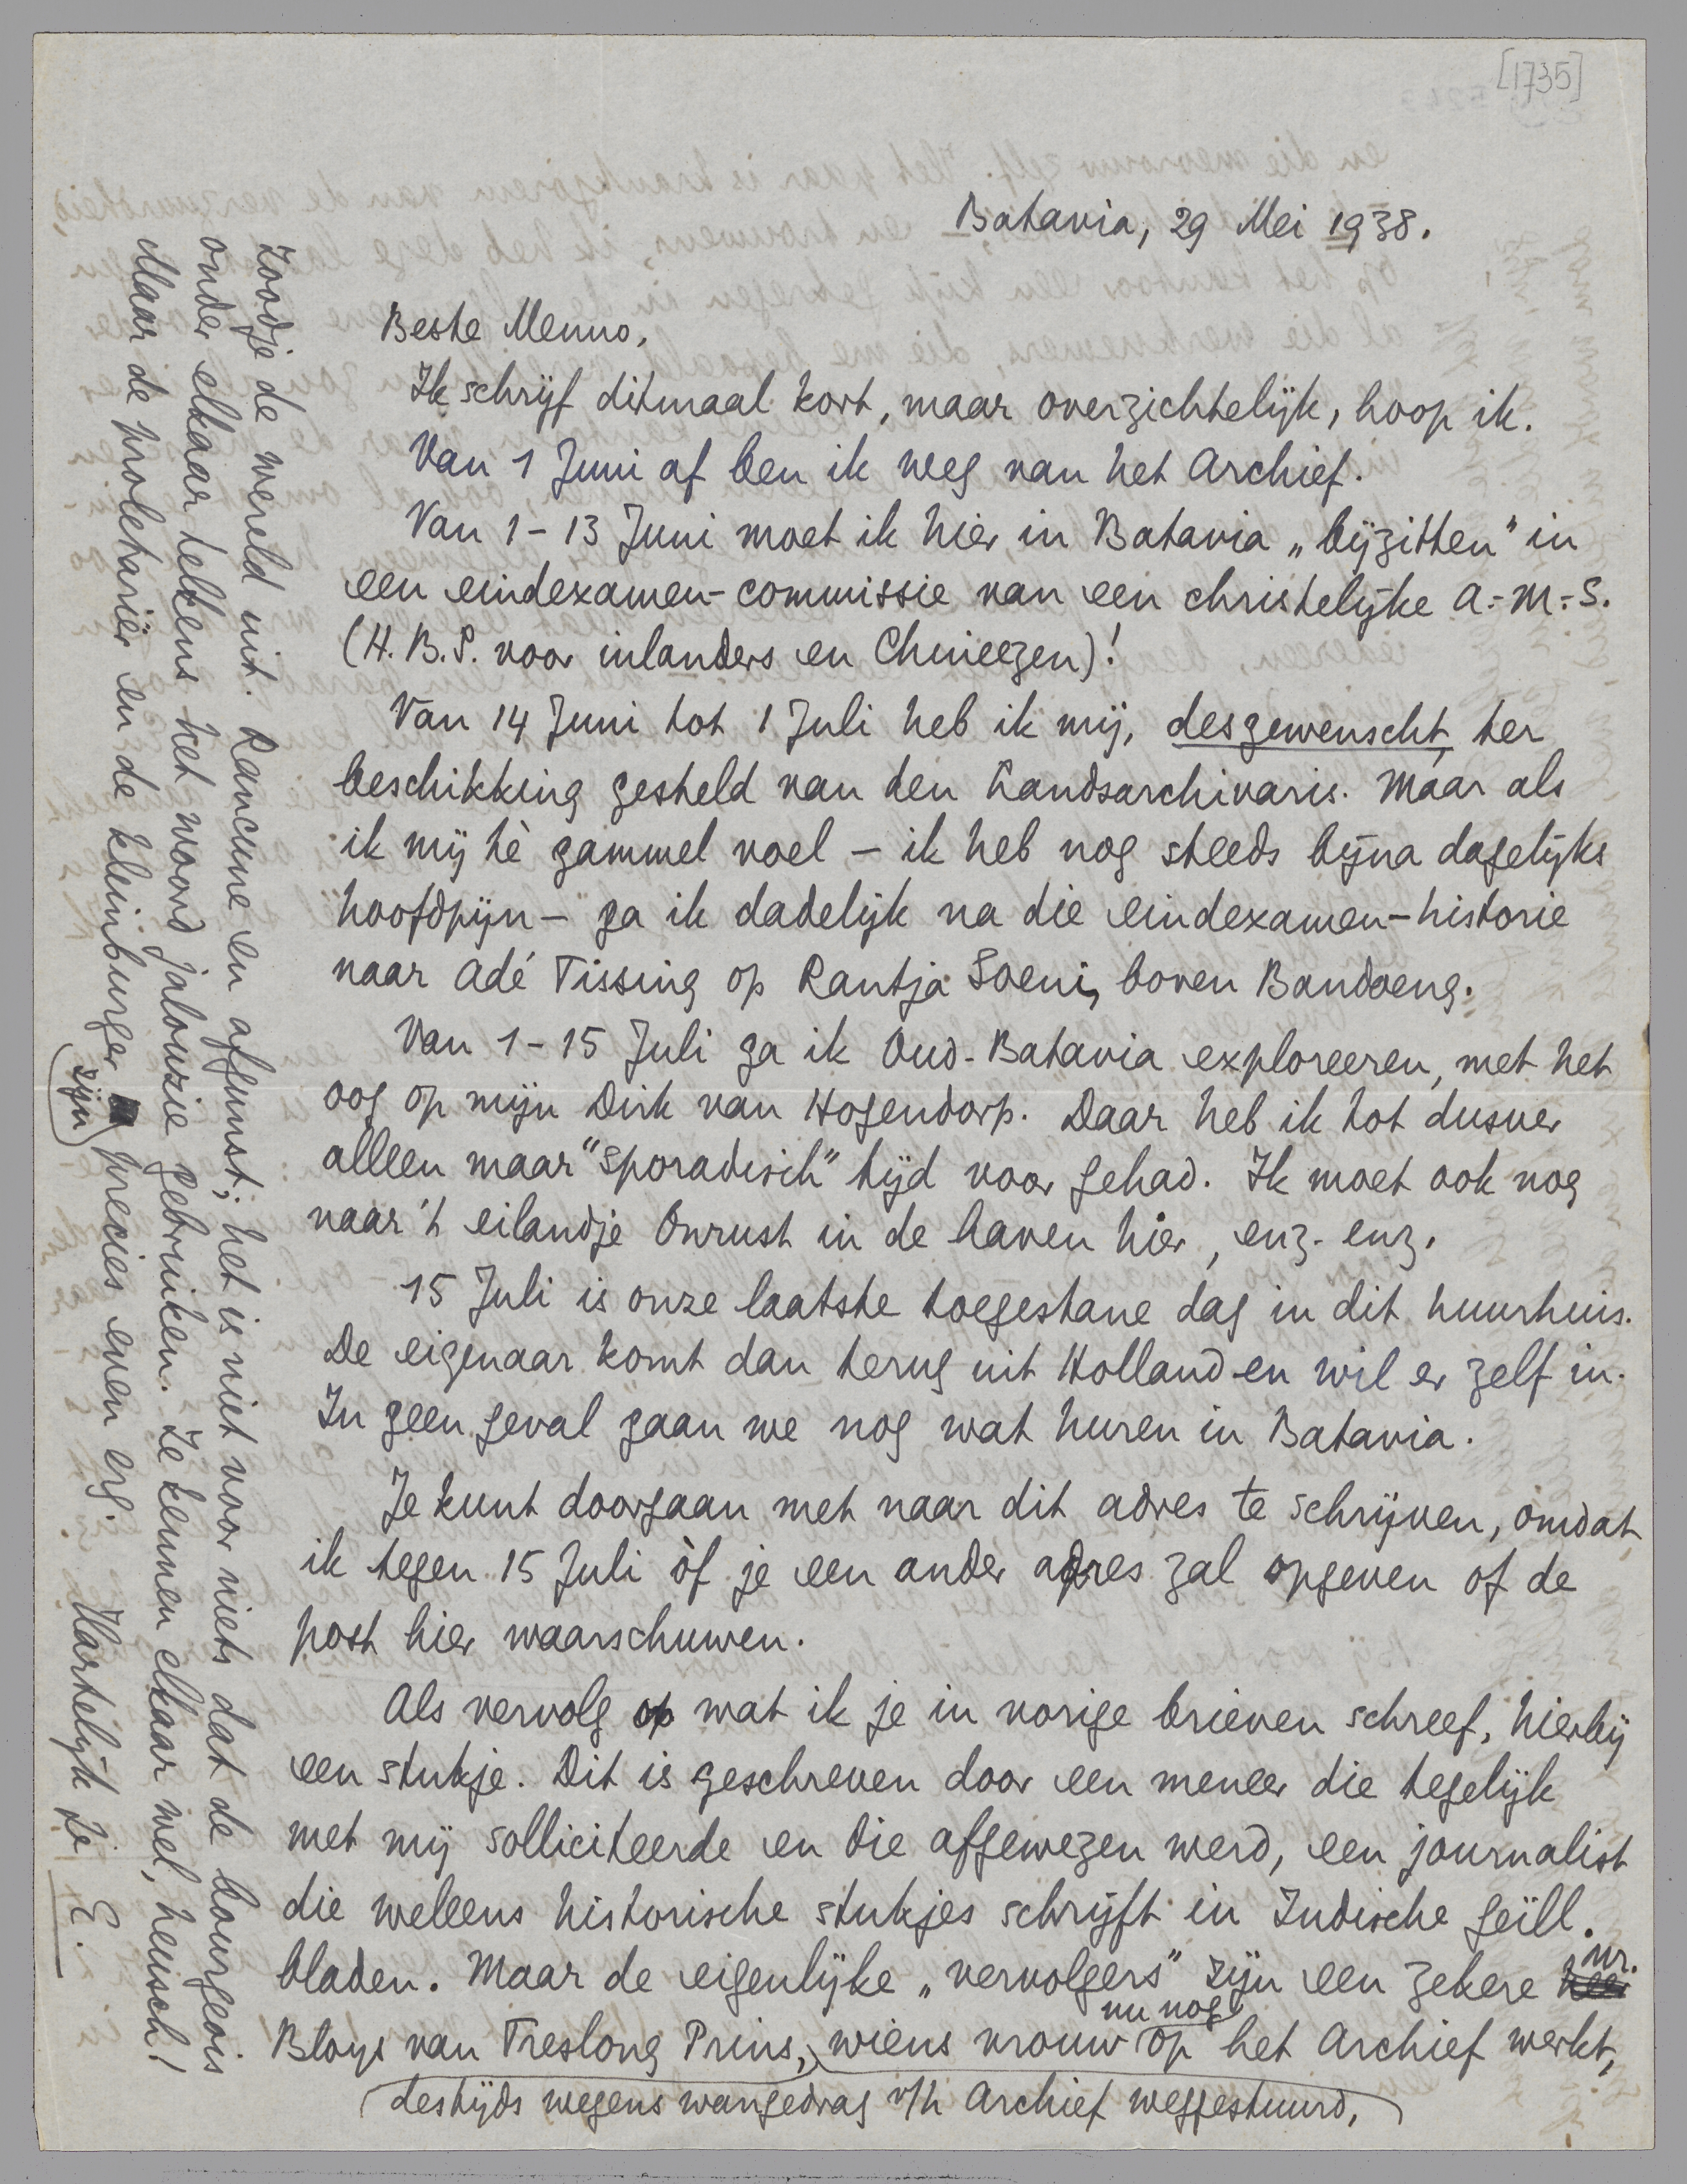 [1735]
Batavia, 29 Mei 1938.
Beste Menno,
Ik schrijf ditmaal kort, maar overzichtelijk, hoop ik.
Van 1 Juni af ben ik weg van het Archief.
Van 1-13 Juni moet ik hier in Batavia „bijzitten" in
een eindexamen-commissie van een christelijke A.-M.-S.
(H.B.S. voor inlanders en Chineezen)!
Van 14 Juni tot 1 Juli heb ik mij, desgewenscht, ter
beschikking gesteld van den Landsarchivaris. Maar als
ik mij tè gammel voel – ik heb nog steeds bijna dagelijks
hoofdpijn – ga ik dadelijk na die eindexamen-historie
naar Adé Tissing op Rantja Soeni, boven Bandoeng.
Van 1-15 Juli ga ik Oud-Batavia exploreeren, met het
oog op mijn Dirk van Hogendorp. Daar heb ik tot dusver
alleen maar "sporadisch" tijd voor gehad. Ik moet ook nog
naar 't eilandje Onrust in de haven hier, enz. enz.
15 Juli is onze laatste toegestane dag in dit huurhuis.
De eigenaar komt dan terug uit Holland en wil er zelf in.
In geen geval gaan we nog wat huren in Batavia.
Je kunt doorgaan met naar dit adres te schrijven, omdat
ik tegen 15 Juli òf je een ander adres zal opgeven of de
post hier waarschuwen.
Als vervolg op wat ik je in vorige brieven schreef, hierbij
een stukje. Dit is geschreven door een meneer die tegelijk
met mij solliciteerde en die afgewezen werd, een journalist
die weleens historische stukjes schrijft in Indische geïll.
bladen. Maar de eigenlijke „vervolgers" zijn een zekere mr.
Bloys van Treslong Prins, wiens vrouw nu nog op het Archief werkt,
destijds wegens wangedrag v/h Archief weggestuurd,
zoodje de wereld uit. Rancune en afgunst; het is niet voor niets dat de bourgeois
onder elkaar telkens het woord jalouzie gebruiken. Ze kennen elkaar wel, heusch!
Maar de proletariër en de kleinburger zijn precies even erg.
Hartelijk je E.